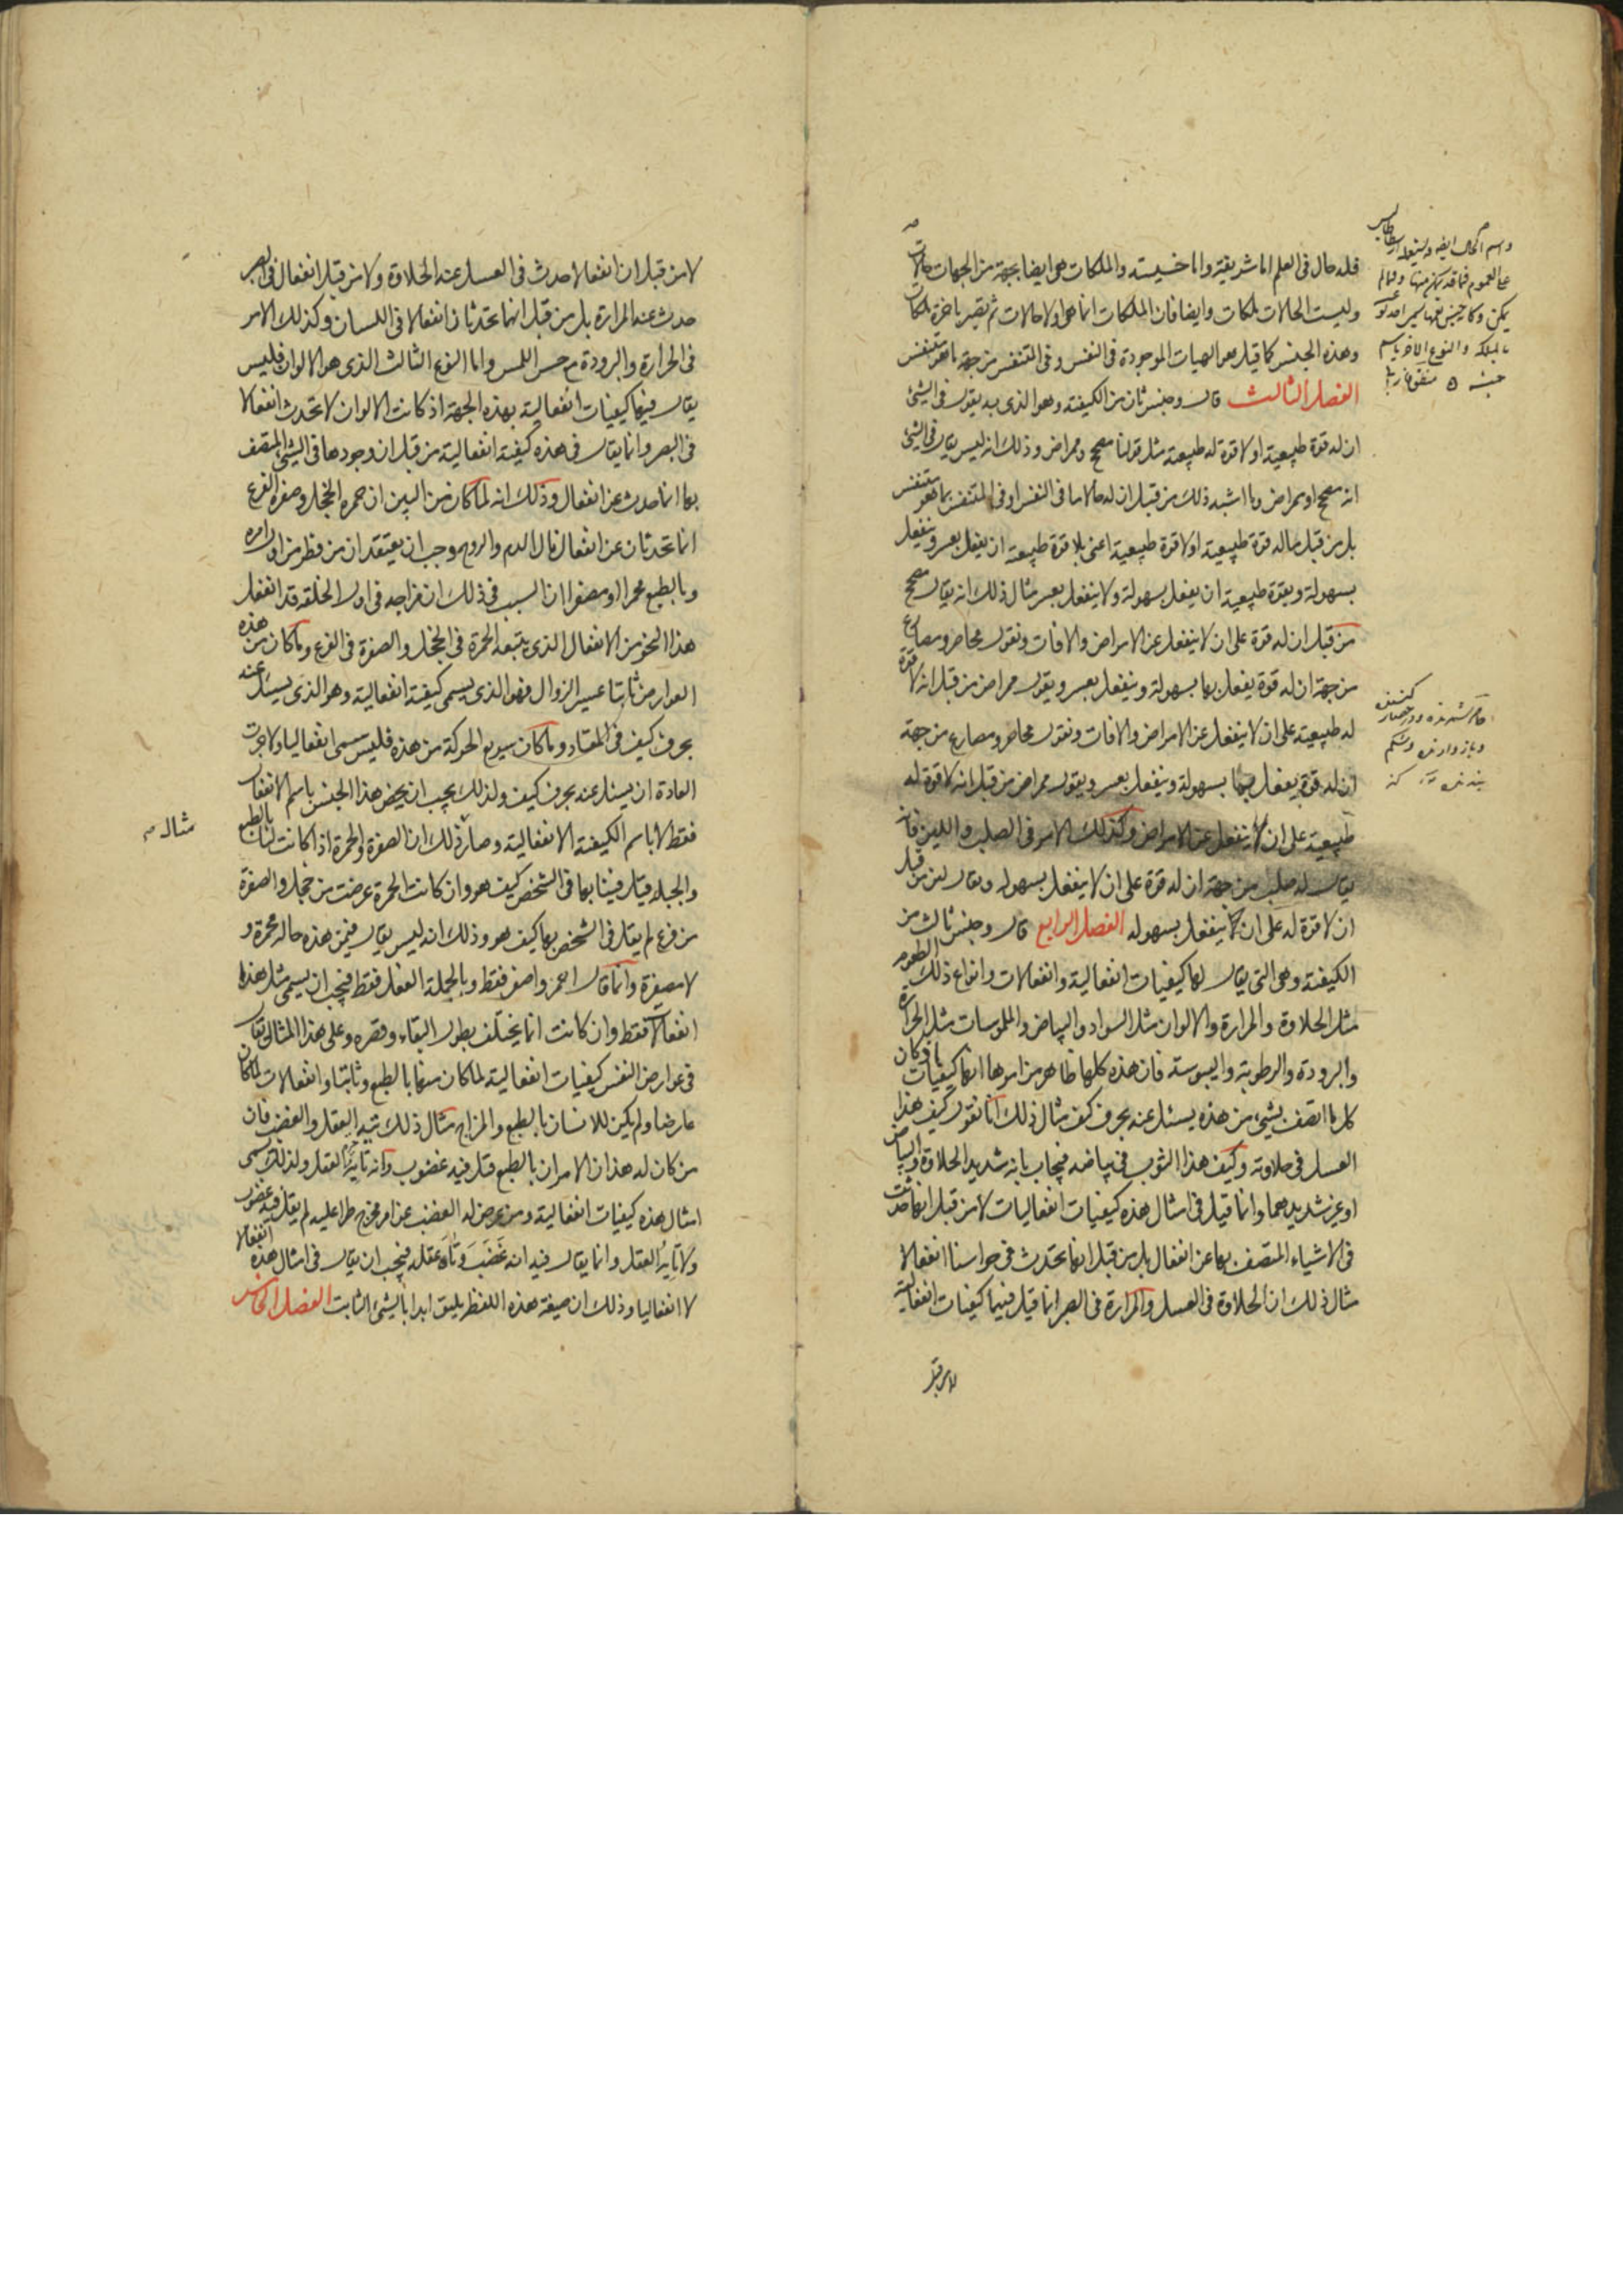 فله حال في العلم اما شريفة واما خسيسة والملكات هي ايضا بجهة من الجهات حالات
وليست الحالات ملكات وايضا فان الملكات انما هي اولا حالات ثم تصير باخرة ملكات
وهذه الجنس كما قيل هو الهيات الموجودة في النفس وفي المتنفس من جهة ما هو متنفس
الفصل الثالث قال وجنس ثان من الكيفية وهو الذي به يقول في الشيئ
ان له قوة طبيعية او لا قوة له طبيعية مثل قولنا مصحح وممراض وذلك انه ليس يقال في الشيئ
انه مصحح او ممراض وما اشبه ذلك من قبل ان له حالا ما في النفس او في المتنفس بما هو متنفس
بل من قبل ما له قوة طبيعية او لا قوة طبيعية اعني بلا قوة طبيعية ان يفعل بعسر وينفعل
بسهولة وبقوة طبيعية ان يفعل بسهولة ولا ينفعل بعسر مثال ذلك انه يقال مصحح
من قبل ان له قوة على ان لا ينفعل عن الامراض والافات ونقول محاضر ومصارع
من جهة ان له قوة يفعل بها بسهولة وينفعل بعسر ويقول ممراض من قبل انه لا قوة
له طبيعية على ان لا ينفعل عن الامراض والافات ونقول محاضر ومصارع من جهة
ان له قوة يفعل بها بسهولة وينفعل بعسر ويقول ممراض من قبل انه لا قوة له
طبيعية على ان لا ينفعل عن الامراض وكذلك الامر في الصلب واللين فانه
يقال له صلب من جهة ان له قوة على ان لا ينفعل بسهولة ويقال لين من قبل
ان لا قوة له على ان لا ينفعل بسهوله الفصل الرابع قال وجنس ثالث من
الكيفية وهي التي يقال لها كيفيات انفعالية وانفعالات وانواع ذلك الطعوم
مثل الحلاوة والمرارة والالوان مثل السواد والبياض والملموسات مثل الحرارة
والبرودة والرطوبة واليبوسة فان هذه كلها ظاهر من امرها انها كيفيات
كل ما اتصف بشيئ من هذه يسئل عنه بحرف كيف مثال ذلك انا نقول كيف هذا
العسل في حلاوته وكيف هذا الثوب في بياضه فيجاب بانه شديد الحلاوة والبياض
او غير شديدهما وانما قيل في امثال هذه كيفيات انفعاليات لا من قبل انها حدثت
في الاشياء المتصف بها عن انفعال بل من قبل انها تحدث في حواسنا انفعالا
مثال ذلك ان الحلاوة في العسل والمرارة في الصبر انما قيل فيهما كيفيات انفعالية
لا من قبل
لا من قبل ان انفعالا حدث في العسل عنه الحلاوة ولا من قبل انفعال في الصبر
حدث عنه المرارة بل من قبل انهما تحدثان انفعالا في اللسان وكذلك الامر
في الحرارة والبرودة مع حس اللمس واما النوع الثالث الذي هو الالوان فليس
يقال فيها كيفيات انفعالية بهذه الجهة اذ كانت الالوان لا تحدث انفعالا
في البصر وانما يقال في هذه كيفية انفعالية من قبل ان وجودها في الشيئ المتصف
بها انما حدث عن انفعال وذلك انه لما كان من البين ان حمرة الخجل وصفرة الفزع
انما تحدثان عن انفعال نال الدم والروح وجب ان يعتقد ان من فطر من اول امره
وبالطبع محمرا او مصفرا ان السبب في ذلك ان مزاجه في اول الخلقة قد انفعل
هذا النحو من الانفعال الذي يتبعه الحمرة في الخجل والصفرة في الفزع وما كان من هذه
العوارض ثابتا عسير الزوال فهو الذي يسمى كيفية انفعالية وهو الذي يسئل عنه
بحرف كيف في المعتاد وما كان سريع الحركة من هذه فليس يسمى انفعاليا ولا جرت
العادة ان يسئل عنه بحرف كيف ولذلك يجب ان يخص هذا الجنس باسم الانفعال
فقط لا باسم الكيفية الانفعالية وصار ذلك ان الصفرة والحمرة اذا كانت لنا بالطبع
مثال
والجبلة قيل فينا بها في الشخص كيف هو وان كانت الحمرة عرضت من خجل والصفرة
من فزع لم يقل في الشخص بها كيف هو وذلك انه ليس يقال فيمن هذه حاله محمرة و
لا مصفرة وانما قال احمر واصفر فقط وبالجملة انفعل فقط فيجب ان يسمى مثل هذه
انفعالا فقط وان كانت انما يختلف بطول البقاء وقصره وعلى هذا المثال يقال
في عوارض النفس كيفيات انفعالية لما كان منها بالطبع وثابتا وانفعالات لما كان
عارضا ولم يكن للانسان بالطبع والمزاج مثال ذلك تيه العقل والغضب فان
من كان له هذان الامران بالطبع قيل فيه غضوب وانه تايه العقل ولذلك يسمى
امثال هذه كيفيات انفعالية ومن عرض له الغضب عن امر محرج طرا عليه لم يقل فيه غضوب
ولا تايه العقل وانما يقال فيه انه غضب وتاه عقله فيجب ان يقال في امثال هذه انفعالا
لا انفعاليا وذلك ان صيغة هذه اللفظ يليق ابدا بالشيئ الثابت الفصل الخامس